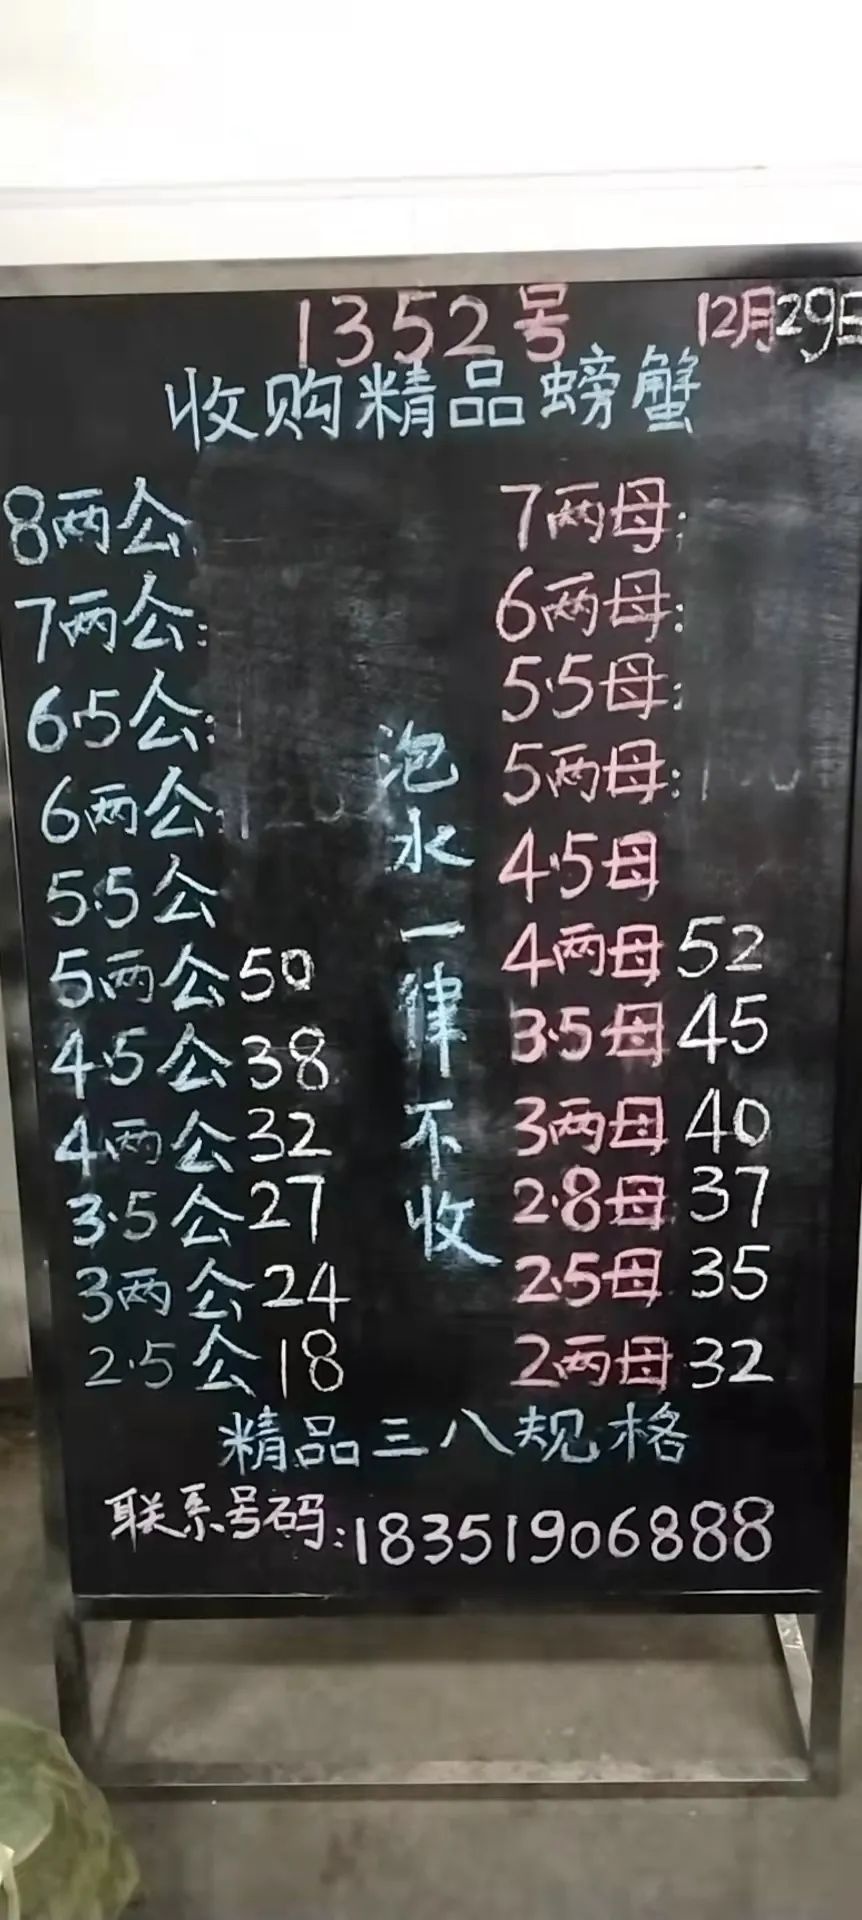 1352号 12月29日
收购精品螃蟹
8两公: 7两母:
7两公: 6两母:
6.5公: 5.5母:
6两公: 5两母:
5.5公 4.5母
5两公50 4两母52
4.5公38 3.5母45
4两公32 3两母40
3.5公27 2.8母37
3两公24 2.5母35
2.5公18 2两母32
泡水一律不收
精品三八规格
联系号码:18351906888